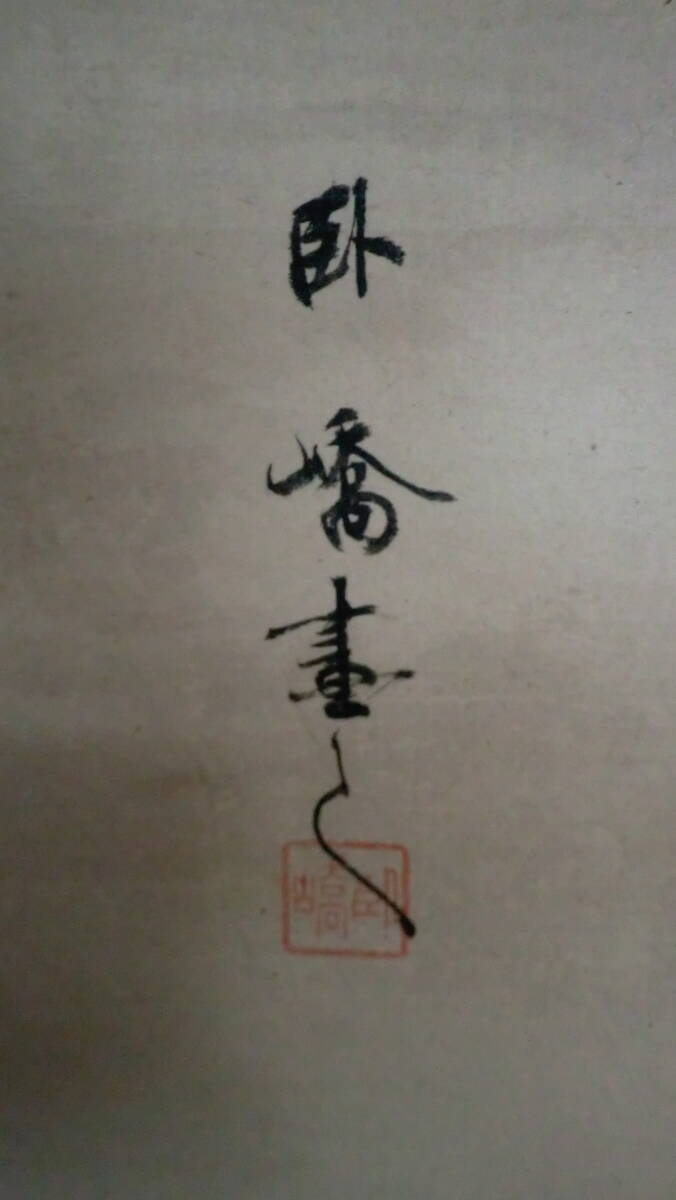 臥嶠畫之
臥嶠